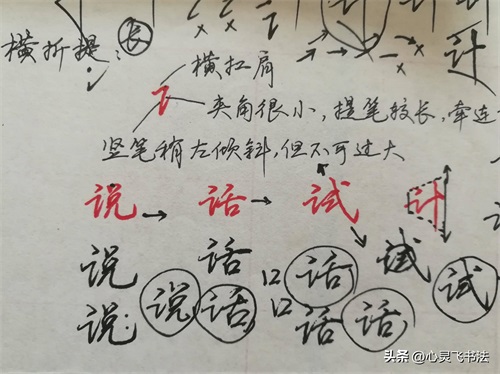 横折提: 长 计
横扛肩
夹角很小,提笔较长,牵连
竖笔稍左倾斜,但不可过大
说 话 试 计
说 话 试
说 说 话 口 话 试
口 话 话
头条 @心灵飞书法